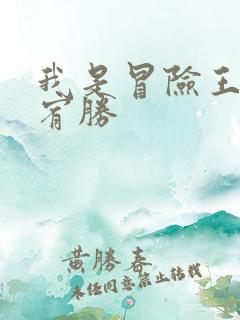 我是冒險王
勝
黄勝春
未经同意禁止转载